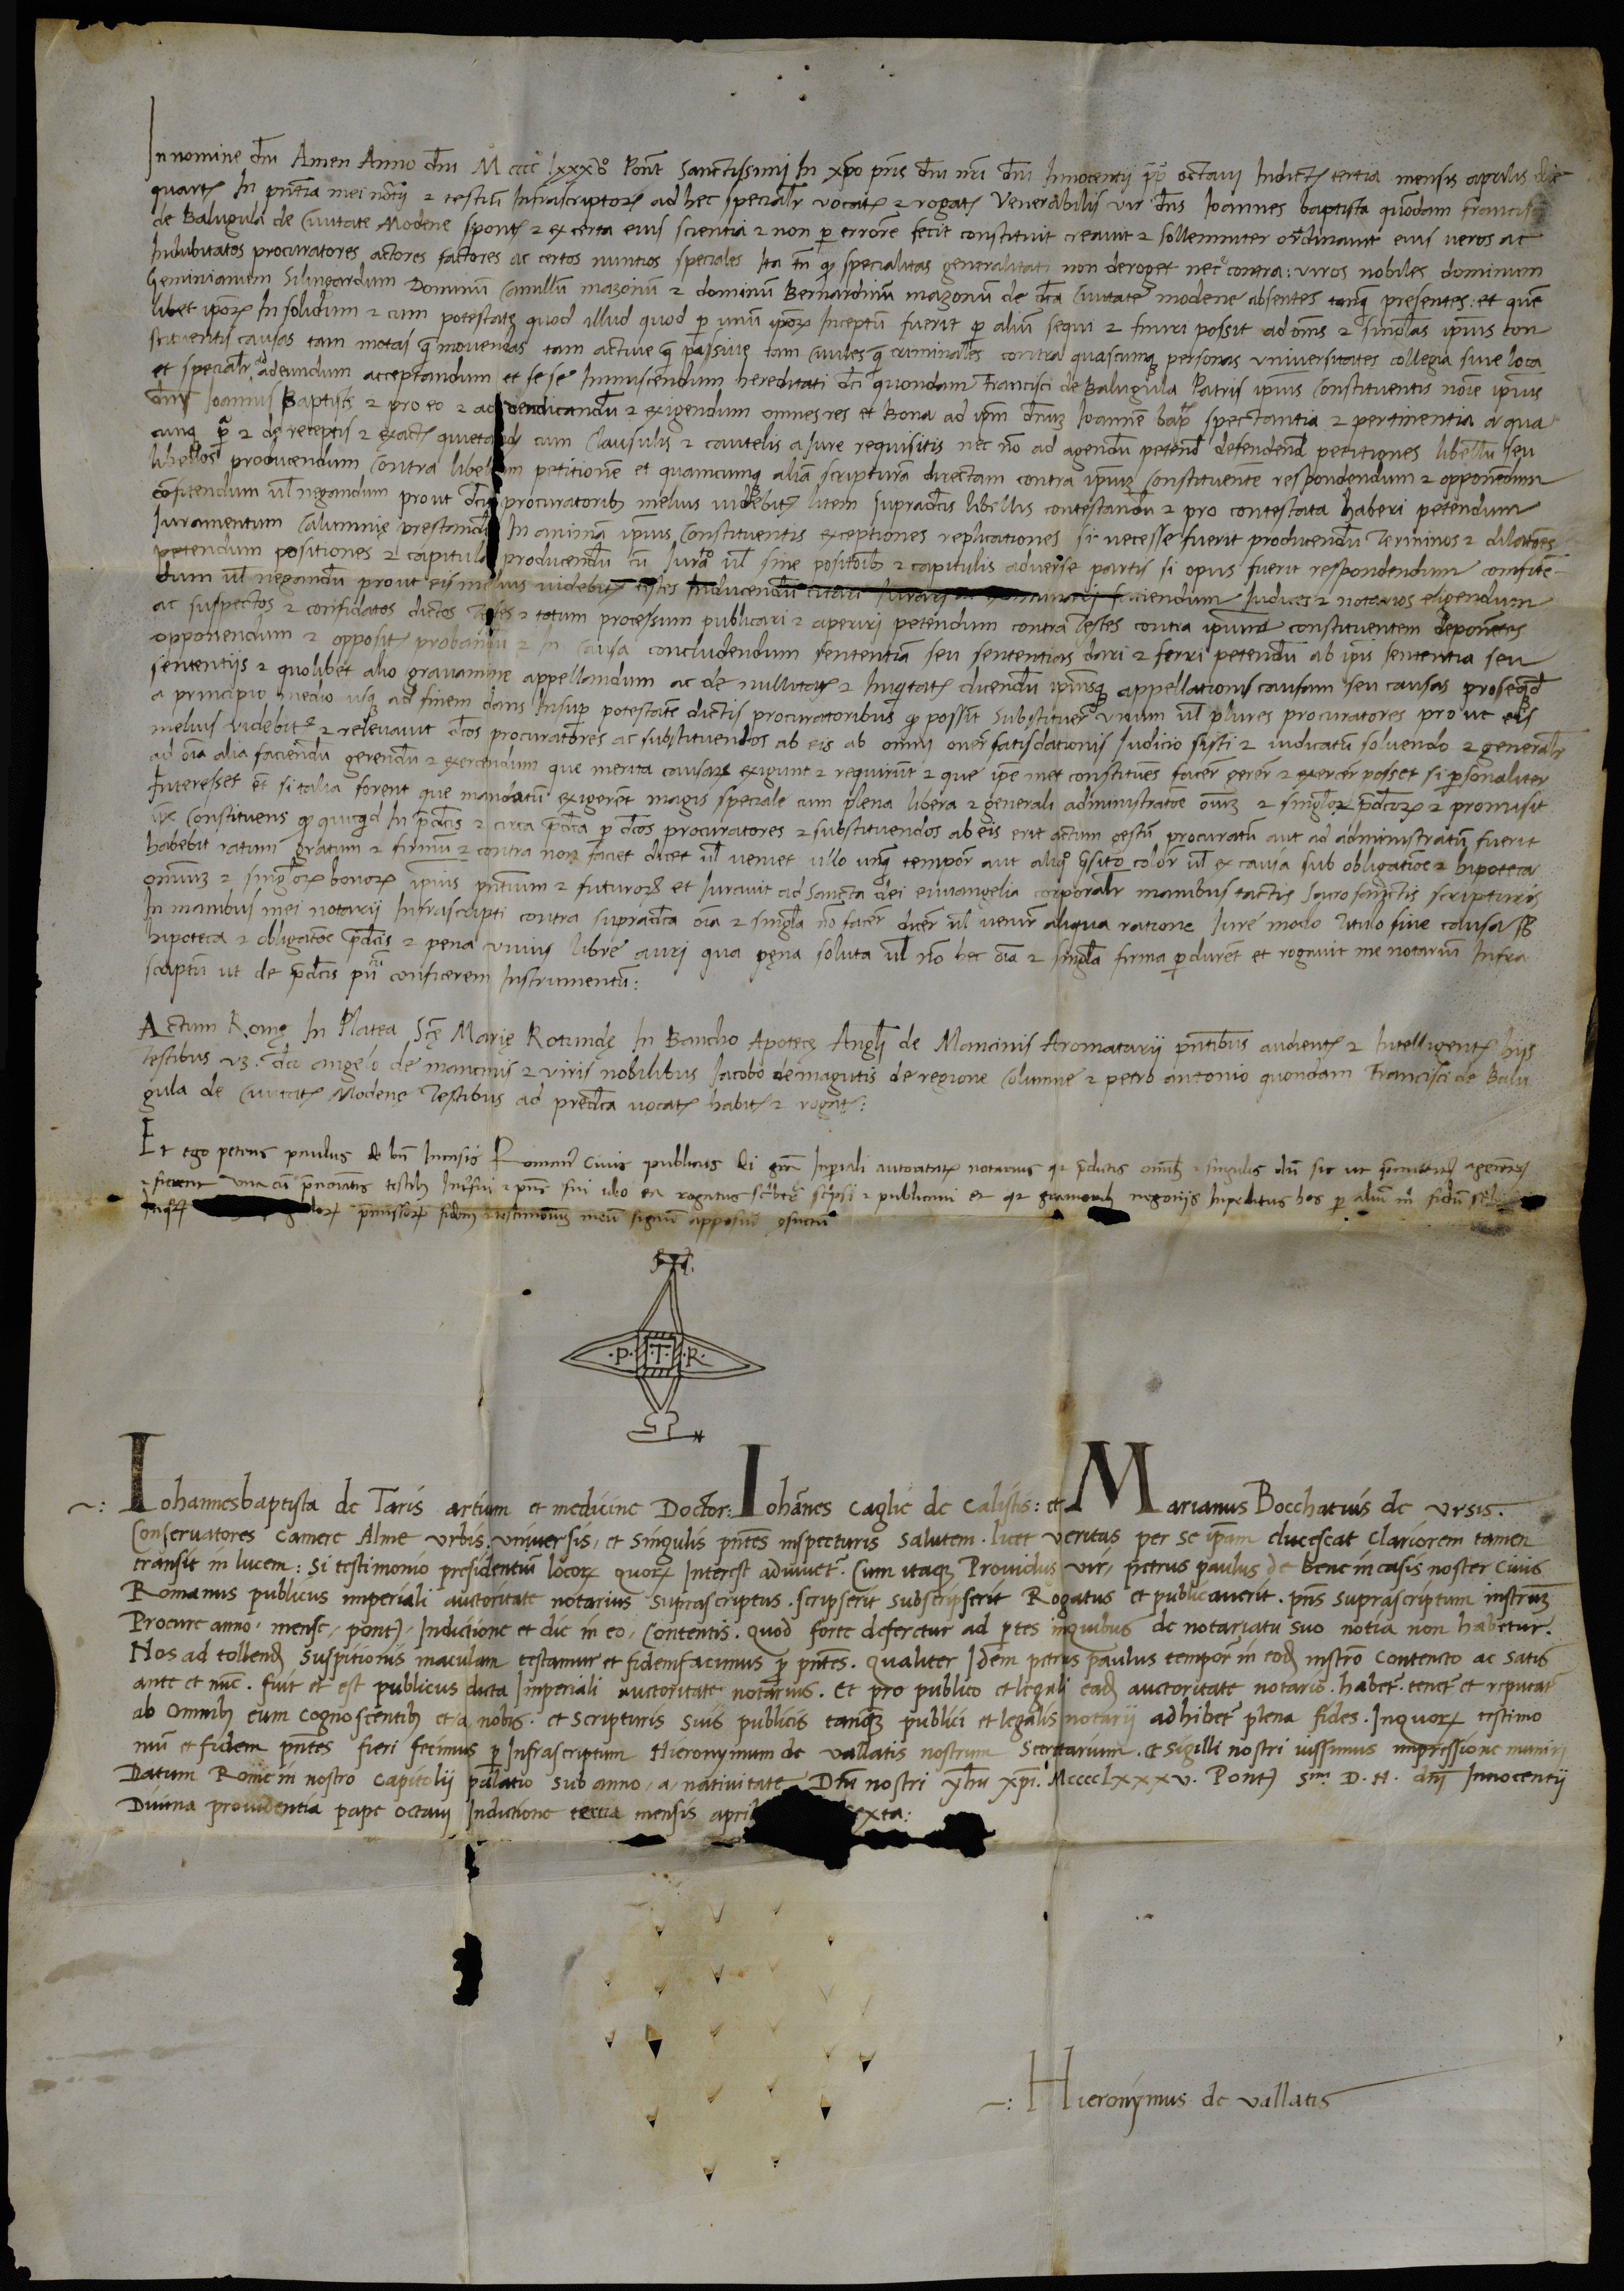 In nomine dni Amen Anno dni M cccc lxxxvo Pont Sanctissimi In xpo pris dni nri dni Innocentij pp octavi Indict tertia mensis aprilis die
quarta In pntia mei notrij & testium Infrascriptor ad hec specialr vocat & rogat Venerabilis vir dns Joannes baptista quondam francisci
de Balugula de Civitate Modene sponte & ex certa eius scientia & non p errore fecit constituit creavit & sollemniter ordinavit eius veros ac
Indubitatos procuratores actores factores ac certos nuntios speciales Ita tn q specialitas generalitati non deroget nec e contra: viros nobiles dominum
Geminianum Silingardum Dominu Camillu mazoniu & dominu Bernardinu mazoniu de dcta Civitate modene absentes tanq presentes: et que
libet ipsor In solidum & cum potestate quod illud quod p unu ipsor Inceptu fuerit p aliu sequi & finiri possit ad omes & singulas ipsius con
stituentis causas tam motas q movendas tam active q passive tam Civiles q criminales contra quascunq personas universitates collegia sive loca
et specialr ad adeundum acceptandum et se se Immiscendum hereditati dci quondam Francisci de Balugula Patris ipsius Constituentis noie ipsius
dni Joannis Baptiste & pro eo & ad vendicandu & exigendum omnes res et Bona ad ipm dnum Joanne bap spectantia & pertinentia a qua
cunq & de receptis & exact quietand cum Clausulis & cautelis a Jure requisitis nec no ad agendu petend defendend petitiones libellu seu
libellos producendum Contra libellum petitione et quamcumq alia scriptura directam contra ipsum Constituente respondendum & opponendum
confitendum vl negandum prout dcis procuratorib melius videbit litem supradctis libellis contestandu & pro contestata haberi petendum
Juramentum Calumnie prestandu In anima ipsius Constituentis exceptiones replicationes si necesse fuerit producendu Terminos & dilatoes
petendum positiones & capitula producendu cu Jurato vl sine positoib & capitulis adverse partis si opus fuerit respondendum confite
dum vl negandu prout eis melius videbit testes Inducendu Judices & notarios eligendum
ac suspectos & confidatos dictos Testes & totum processum publicari & aperiri petendum contra Testes contra ipsum constituentem deponetes
opponendum & opposit probandu & In Causa concludendum sententia seu sententias dari & ferri petendu ab ipis sententia seu
sententijs & quolibet alio gravamine appellandum ac de nullitate & Iniqtate dicendu ipsiusq appellationis causam seu causas prosequend
a principio medio usq ad finem dans Insup potestate dictis procuratoribus q possit Substituer unum vl plures procuratores prout eis
melius videbit & relevavit dcos procuratores ac substituendos ab eis ab omni oner satisdationis Judicio sisti & iudicatu solvendo & generalr
ad oia alia faciendu gerendu & exercendum que merita causar exigunt & requirut & que ipe met constitues facer gerer & exercer posset si personaliter
Interesset et si talia forent que mandatu exigeret magis speciale cum plena libera & generali administratoe oium & singulor pdctor & promisit
ipe Constituens q quicqd In pdctis & circa pdcta p dcos procuratores & substituendos ab eis erit actum gestu procuratu aut ad administratu fuerit
habebit ratum gratum & firmu & contra non faciet dicet vl veniet ullo unq tempor aut aliq qsito color vl ex causa sub obligatioe & hipoteca
omnium & singulor bonor ipsius pntium & futuror et Juravit ad sancta dei euuangelia corporalr manibus tactis sacro sanctis scripturis
In manibus mei notarij Infrascripti contra supradcta oia & singula no facer dicer vl venir aliqua ratione Jure modo Titulo sive causa sb
hipoteca & obligatoe pdctis & pena unius libre auri qua pena soluta vl no hec oia & singula firma perduret et rogavit me notariu Infra
scriptu ut de pdctis pu conficerem Instrumentu:
Actum Rome In Platea Sce Marie Rotunde In Bancho Apotece Angli de Mancinis Aromatarij pntibus audient & Intelligent hijs
Testibus vz. dcto angelo de mancinis & viris nobilibus Jacobo de magutis de regione Columne & petro antonio quondam Francisci de Balu
gula de Civitate Modene Testibus ad predcta vocat habit & rogat:
Et ego petrus paulus de bn Incasis Romanus Civis publicus dei gra Imperiali auctoritate notarius qr pdictis omib & singulis du sic ut pmittit agerent
& fierent una cu pnoiatis testib Interfui & pns fui ideo ea rogatus scribere scripsi & publicavi et qr gravioribus negotijs Impeditus hos p aliu m fidu
pmissor fidem & testimoniu meu signu apposui csuetu
·P· ·T· ·R·
~: Iohannesbaptista de Taris artium et medicine Doctor: Iohanes Caglie de Calistis: et Marianus Bocchatius de ursis.
Conservatores Camere Alme urbis, universis, et singulis pntes inspecturis Salutem. licet veritas per se ipam elucescat Clariorem tamen
transit in lucem: Si testimonio presidentiu locor quor Interest adiuvet. Cum itaq Providus vir, petrus paulus de bene in casis noster Civis
Romanus publicus imperiali auctoritate notarius Suprascriptus. scripserit Subscripserit Rogatus et publicaverit. pns suprascriptum instrum
Procure anno, mense, pont, Indictione et die in eo, Contentis. Quod forte deferetur ad partes inquibus de notariatu suo notia non habetur.
Nos ad tollend Suspitionis maculam testamur et fidemfacimus p pntes. qualiter Idem petrus paulus tempor in eod instro Contencto ac satis
ante et nuc. fuit et est publicus dicta Imperiali auctoritate notarius. Et pro publico et legali ead auctoritate notario. habet. tenet et reputat
ab Omnib eum cognoscentib et a nobis. et Scripturis suis publicis tanq publici et legalis notarij adhibet plena fides. Inquor testimo
niu et fidem pntes fieri fecimus p Infrascriptum Hieronymum de vallatis nostrum Secretarium. et sigilli nostri iussimus impressione muniri
Datum Rome in nostro Capitolij palatio Sub anno, a, nativitate Dni nostri yhu xpi. MccccLxxxv. Pont Smi D. N. dni Innocentij
Divina providentia pape octavi Indictione tertia mensis april xta:
~: Hieronymus de vallatis